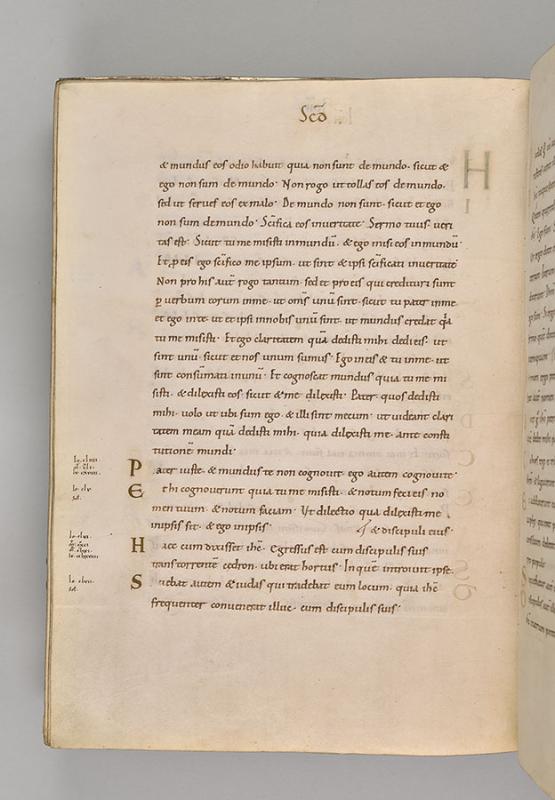 Scđ
& mundus eos odio habuit quia non sunt de mundo· sicut &
ego non sum de mundo· Non rogo ut tollas eos de mundo·
sed ut serues eos ex malo· De mundo non sunt· sicut et ego
non sum de mundo· Sc̄ifica eos in ueritate· Sermo tuus ueri
tas est· Sicut tu me misisti in mundū· & ego misi eos in mundū·
Et ꝓ eis ego sc̄ifico me ipsum· ut sint & ipsi sc̄ificati in ueritate·
Non pro his aut̄ rogo tantum· sed et pro eis qui credituri sunt
ꝑ uerbum eorum in me· ut om̄s unū sint· sicut tu pater in me
et ego in te· ut et ipsi in nobis unū sint· ut mundus credat qa
tu me misisti· Et ego claritatem quā dedisti mihi dedi eis· ut
sint unū· sicut et nos unum sumus· Ego in eis & tu in me· ut
sint consūmati in unū· Et cognoscat mundus quia tu me mi
sisti· & dilexisti eos sicut & me dilexisti· Pater· quos dedisti
mihi· uolo ut ubi sum ego· & illi sint mecum· ut uideant clari
tatem meam quā dedisti mihi· quia dilexisti me· ante consti
tutionē mundi·
Pater iuste· & mundus te non cognouit· ego autem cognoui te·
Et hi cognouerunt quia tu me misisti· & notum feci eis no
men tuum· & notum faciam· Ut dilectio qua dilexisti me
in ipsis sit· & ego in ipsis· & discipuli eius·
Haec cum dixisset ihē· Egressus est cum discipulis suis
trans torrentē cedron· ubi erat hortus· In quē introiuit ipse·
Sciebat autem & iudas qui tradebat eum locum· quia ihē
frequenter conuenerat illuc· cum discipulis suis·